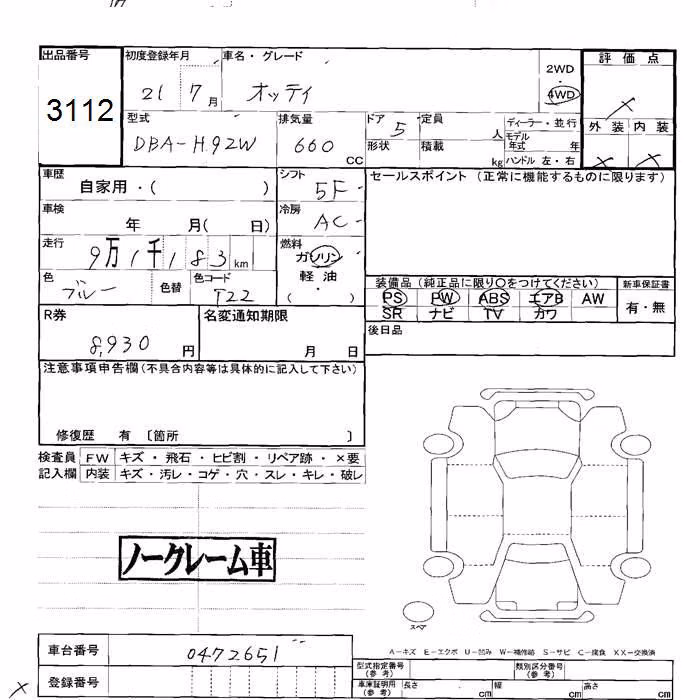 出品番号 初度登録年月 車名・グレード 評価点
3112 21 7月 オッティ 2WD 4WD ×
型式 排気量 ドア 定員 ディーラー・並行 外装 内装
DBA-H92W 660 CC 5 人 モデル年式 年 × ×
形状 積載 kg ハンドル 左・右
車歴 自家用・( ) シフト 5F セールスポイント (正常に機能するものに限ります)
車検 年 月( 日) 冷房 AC
走行 9万1千183km 燃料 ガソリン
軽油
・
( )
色 ブルー 色替 色コード T22
装備品 (純正品に限り○をつけてください) 新車保証書
PS PW ABS エアB AW 有・無
SR ナビ TV カワ
R券 8,930円 名変通知期限 月 日 後日品
注意事項申告欄(不具合内容等は具体的に記入して下さい)
修復歴 有 〔箇所 〕
検査員 FW キズ・飛石・ヒビ割・リペア跡・×要
記入欄 内装 キズ・汚レ・コゲ・穴・スレ・キレ・破レ
ノークレーム車
スペア
A-キズ E-エクボ U-凹み W-補修跡 S-サビ C-腐食 XX-交換済
車台番号 0472651
登録番号
型式指定番号(参考) 類別区分番号(参考)
車庫証明用(参考) 長さ cm 幅 cm 高さ cm
×